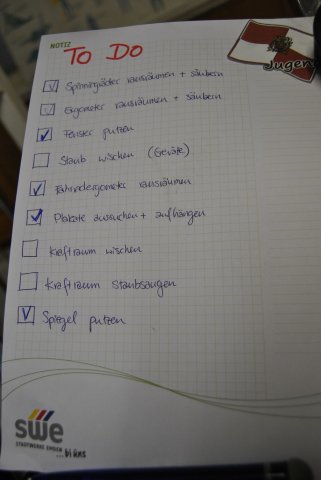 NOTIZ
TO DO
Jugen
Spinningräder rausräumen + säubern
Ergometer rausräumen + säubern
Fenster putzen
Staub wischen (Geräte)
Fahrradergometer rausräumen
Plakate aussuchen + aufhängen
Kraftraum wischen
Kraftraum Staubsaugen
Spiegel putzen
swe
STADTWERKE EMDEN
...bi uns